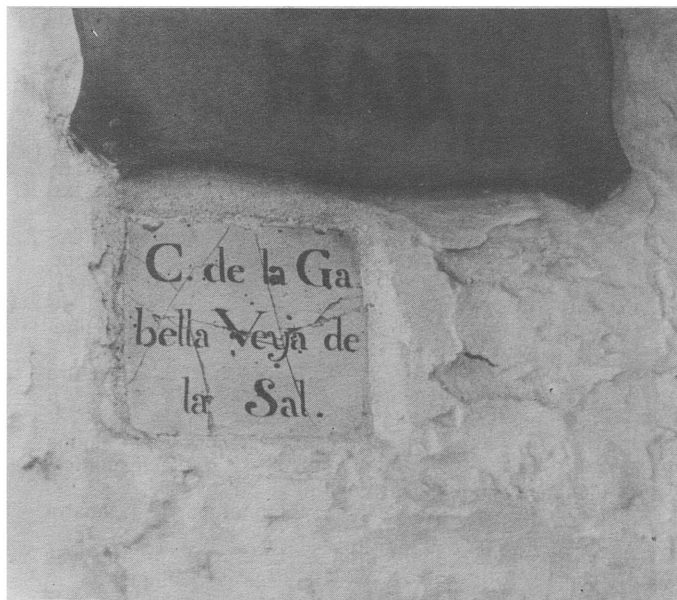 C. de la Ga
bella Veya de
la Sal.